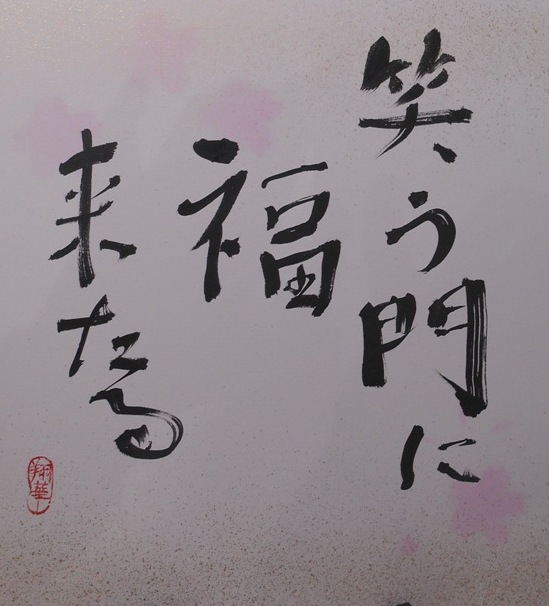 笑う門に
福
来たる
翔華